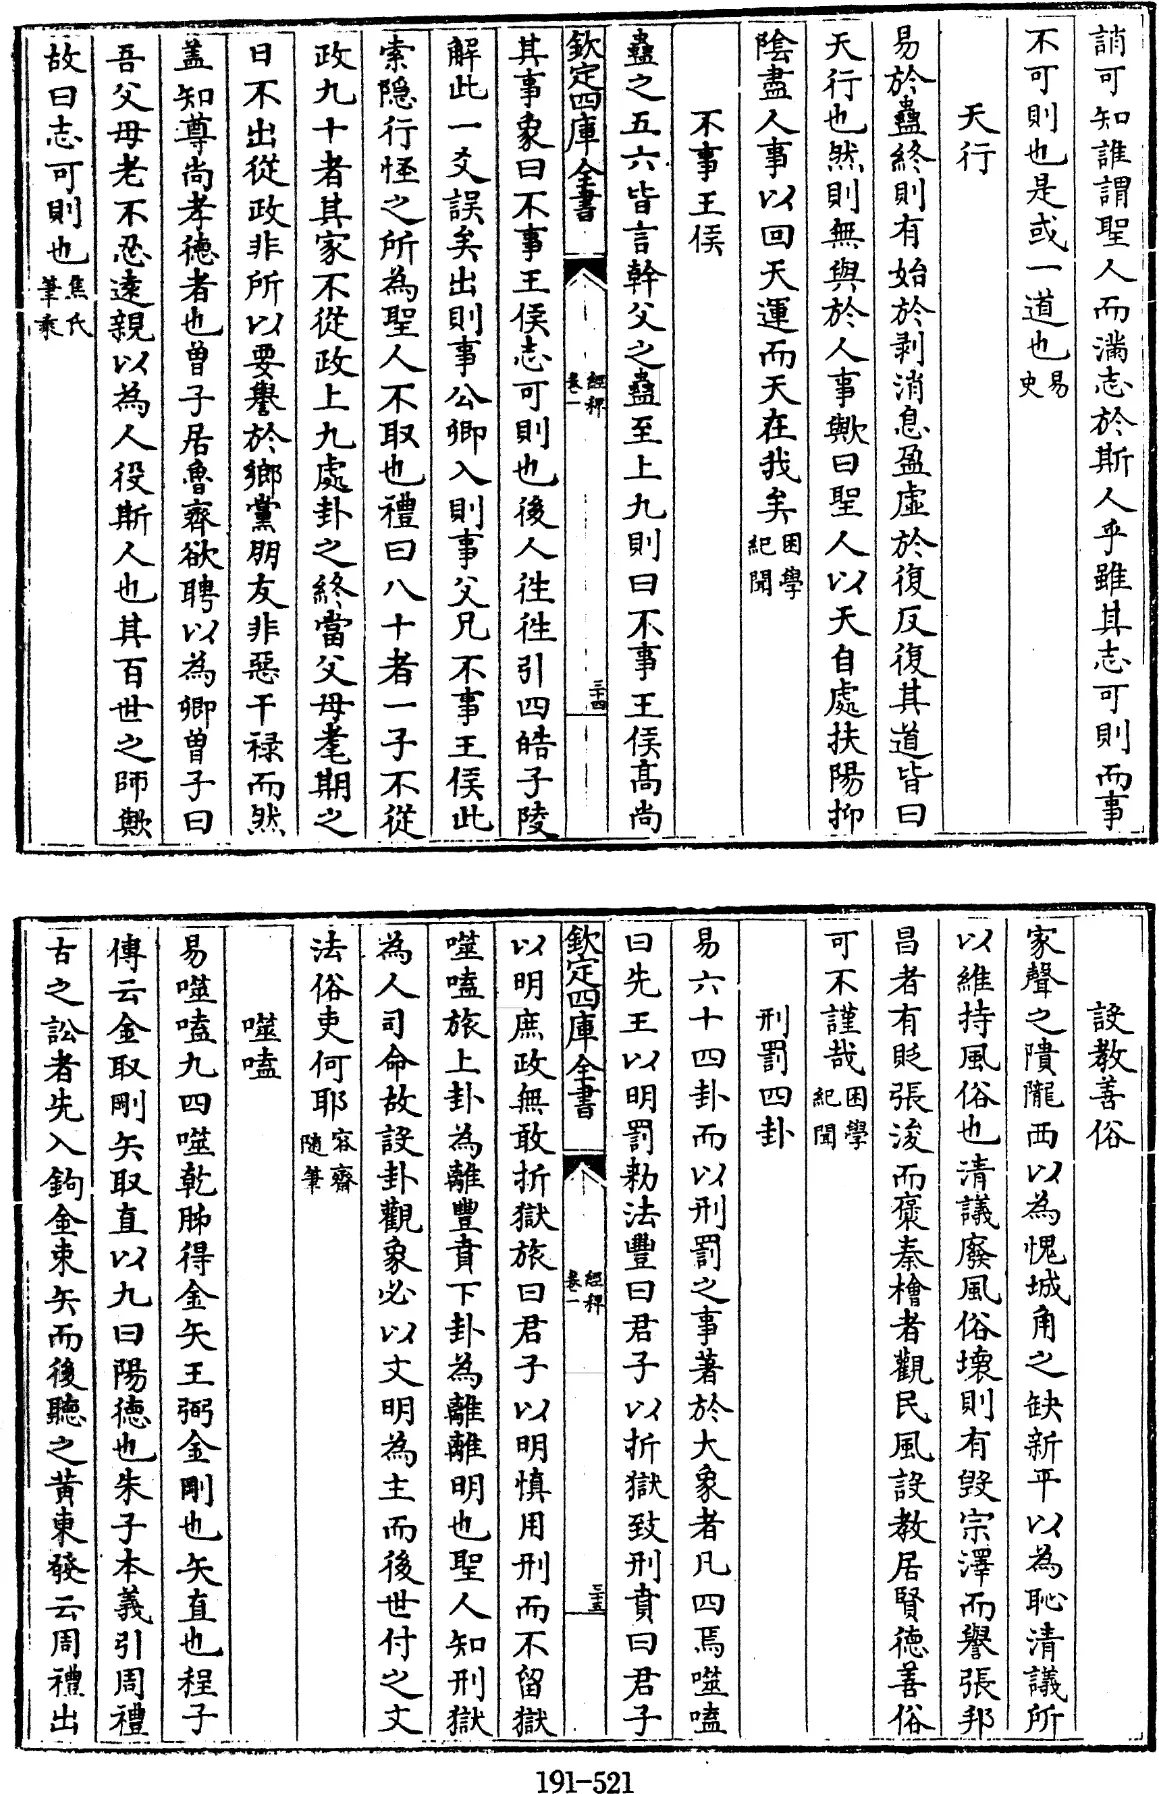 誚可知誰謂聖人而滿志於斯人乎雖其志可則而事
不可則也是或一道也易史
天行
易於蠱終則有始於剥消息盈虛於復反復其道皆曰
天行也然則無與於人事歟曰聖人以天自處扶陽抑
陰盡人事以回天運而天在我矣困學紀聞
不事王侯
蠱之五六皆言幹父之蠱至上九則曰不事王侯髙尚
欽定四庫全書
經稗
卷一
三十四
其事象曰不事王侯志可則也後人徃徃引四皓子陵
解此一爻誤矣出則事公卿入則事父兄不事王侯此
索隱行怪之所為聖人不取也禮曰八十者一子不從
政九十者其家不從政上九處卦之終當父母耄期之
日不出從政非所以要譽於鄉黨朋友非惡干禄而然
盖知尊尚孝德者也曽子居魯齊欲聘以為卿曽子曰
吾父母老不忍逺親以為人役斯人也其百世之師歟
故曰志可則也焦氏筆乘
設教善俗
家聲之隤隴西以為愧城角之缺新平以為恥清議所
以維持風俗也清議廢風俗壊則有毁宗澤而譽張邦
昌者有貶張浚而褒秦檜者觀民風設教居賢德善俗
可不謹哉困學紀聞
刑罰四卦
易六十四卦而以刑罰之事著於大象者凡四焉噬嗑
曰先王以明罰勅法豐曰君子以折獄致刑賁曰君子
欽定四庫全書
經稗
卷一
三十五
以明庶政無敢折獄旅曰君子以明慎用刑而不留獄
噬嗑旅上卦為離豐賁下卦為離離明也聖人知刑獄
為人司命故設卦觀象必以文明為主而後世付之文
法俗吏何耶容齋隨筆
噬嗑
易噬嗑九四噬乾胏得金矢王弼金剛也矢直也程子
傳云金取剛矢取直以九曰陽德也朱子本義引周禮
古之訟者先入鈞金束矢而後聽之黄東發云周禮出
191-521